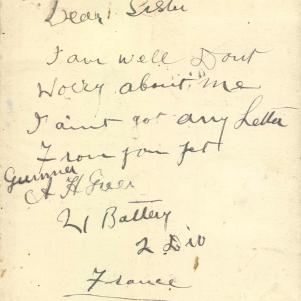 Dear Sister
I am well Dont
Worry about me
I aint got any Letter
From you yet
Gunner
A H Greer
21 Battery
2 Div
France